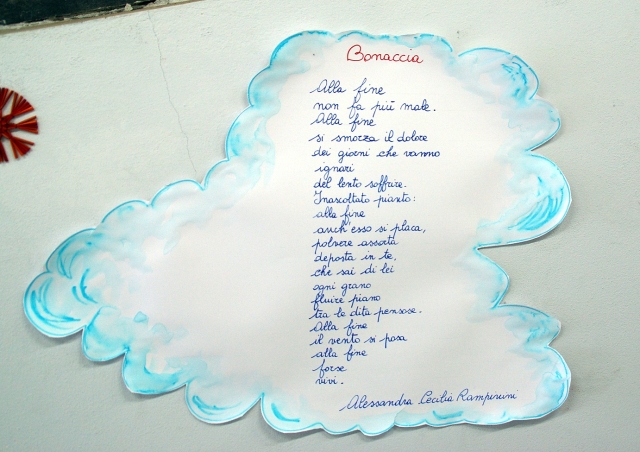 Bonaccia
Alla fine
non fa più male.
Alla fine
si smorza il dolore
dei giorni che vanno
ignari
del lento soffrire.
Inascoltato pianto:
alla fine
anch'esso si placa,
polvere assorta
deposta in te,
che sai di lei
ogni grano
fluire piano
tra le dita pensose.
Alla fine
il vento si posa
alla fine
forse
vivi.
Alessandra Cecilia Rampinini